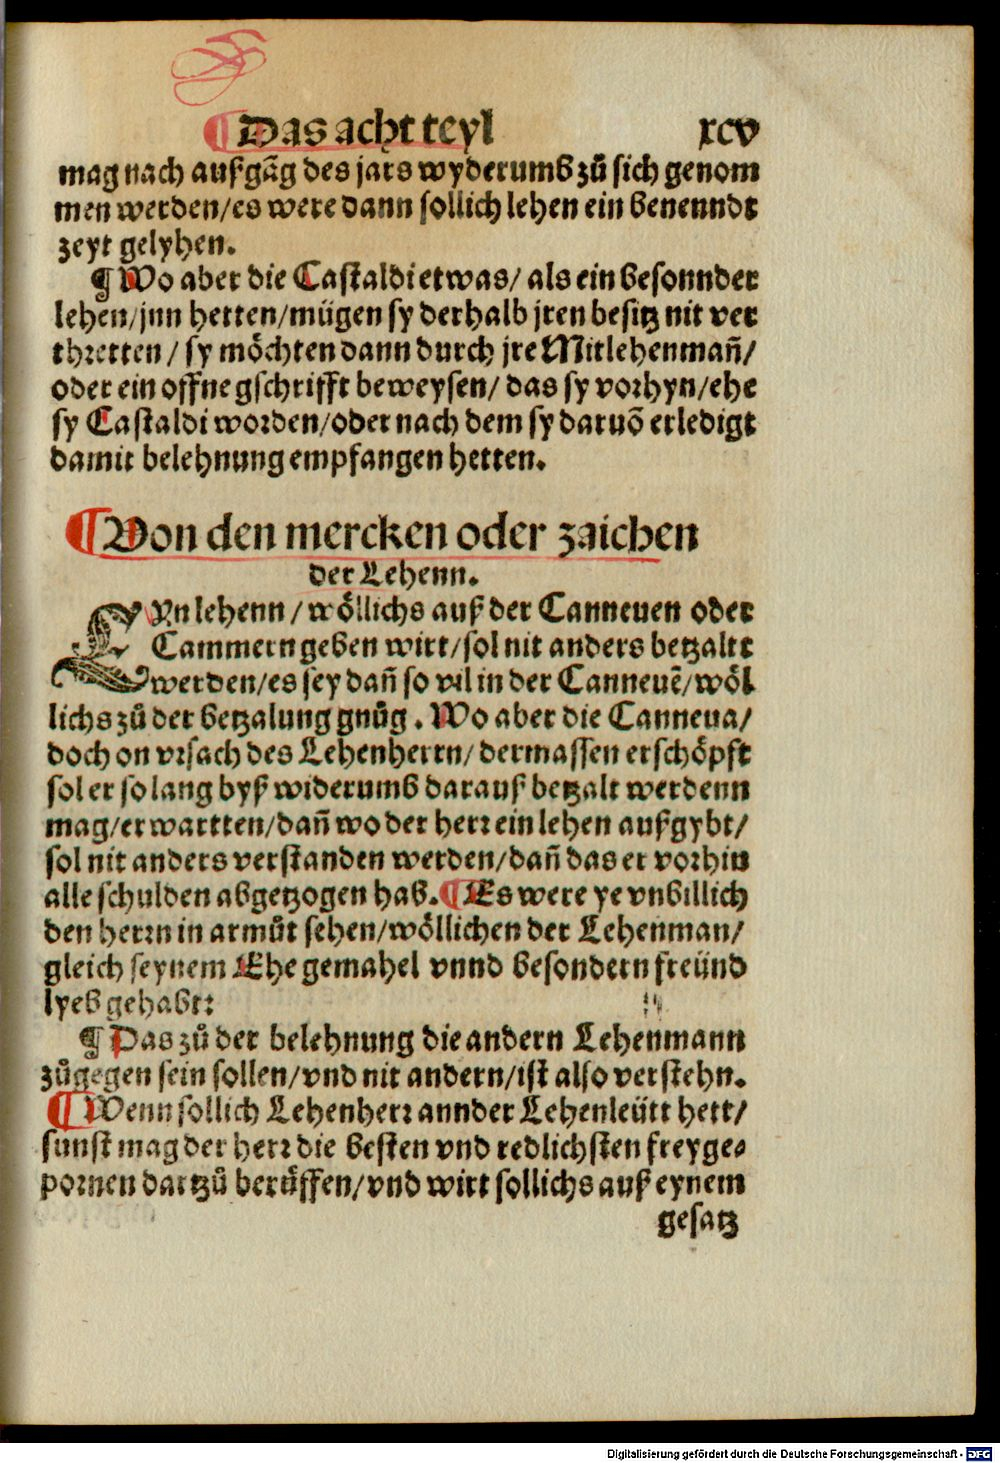 ¶Das acht teyl xcv
mag nach außgãg des jars wyderumb zů sich genom
men werden/es were dann sollich lehen ein benenndt
zeyt gelyhen.
¶ Wo aber die Castaldi etwas/ als ein besonnder
lehen/jnn hetten/mügen sy derhalb jren besitz nit ver
thretten / sy möchten dann durch jre Mitlehenmañ/
oder ein offne gschrifft beweysen/ das sy vorhyn/ehe
sy Castaldi worden/oder nach dem sy daruõ erledigt
damit belehnung empfangen hetten.
¶Von den mercken oder zaichen
der Lehenn.
EYn lehenn / wöllichs auß der Canneuen oder
Cammern geben wirt/sol nit anders betzaltt
werden/es sey dañ so vil in der Canneuẽ/wöl
lichs zů der betzalung gnůg . Wo aber die Canneua/
doch on vrsach des Lehenherrn/ dermassen erschöpft
sol er so lang byß widerumb darauß betzalt werdenn
mag/er wartten/dañ wo der herr ein lehen außgybt/
sol nit anders verstanden werden/dañ das er vorhin
alle schulden abgetzogen hab. ¶Es were ye vnbillich
den herrn in armůt sehen/wöllichen der Lehenman/
gleich seynem Ehegemahel vnnd besondern freünd
lyeb gehabt:
¶ Das zů der belehnung die andern Lehenmann
zůgegen sein sollen/vnd nit andern/ist also verstehn.
¶ Wenn sollich Lehenherr annder Lehenleütt hett/
sunst mag der herr die besten vnd redlichsten freyge⸗
pornen dartzů berůffen/vnd wirt sollichs auß eynem
gesatz
Digitalisierung gefördert durch die Deutsche Forschungsgemeinschaft - DFG